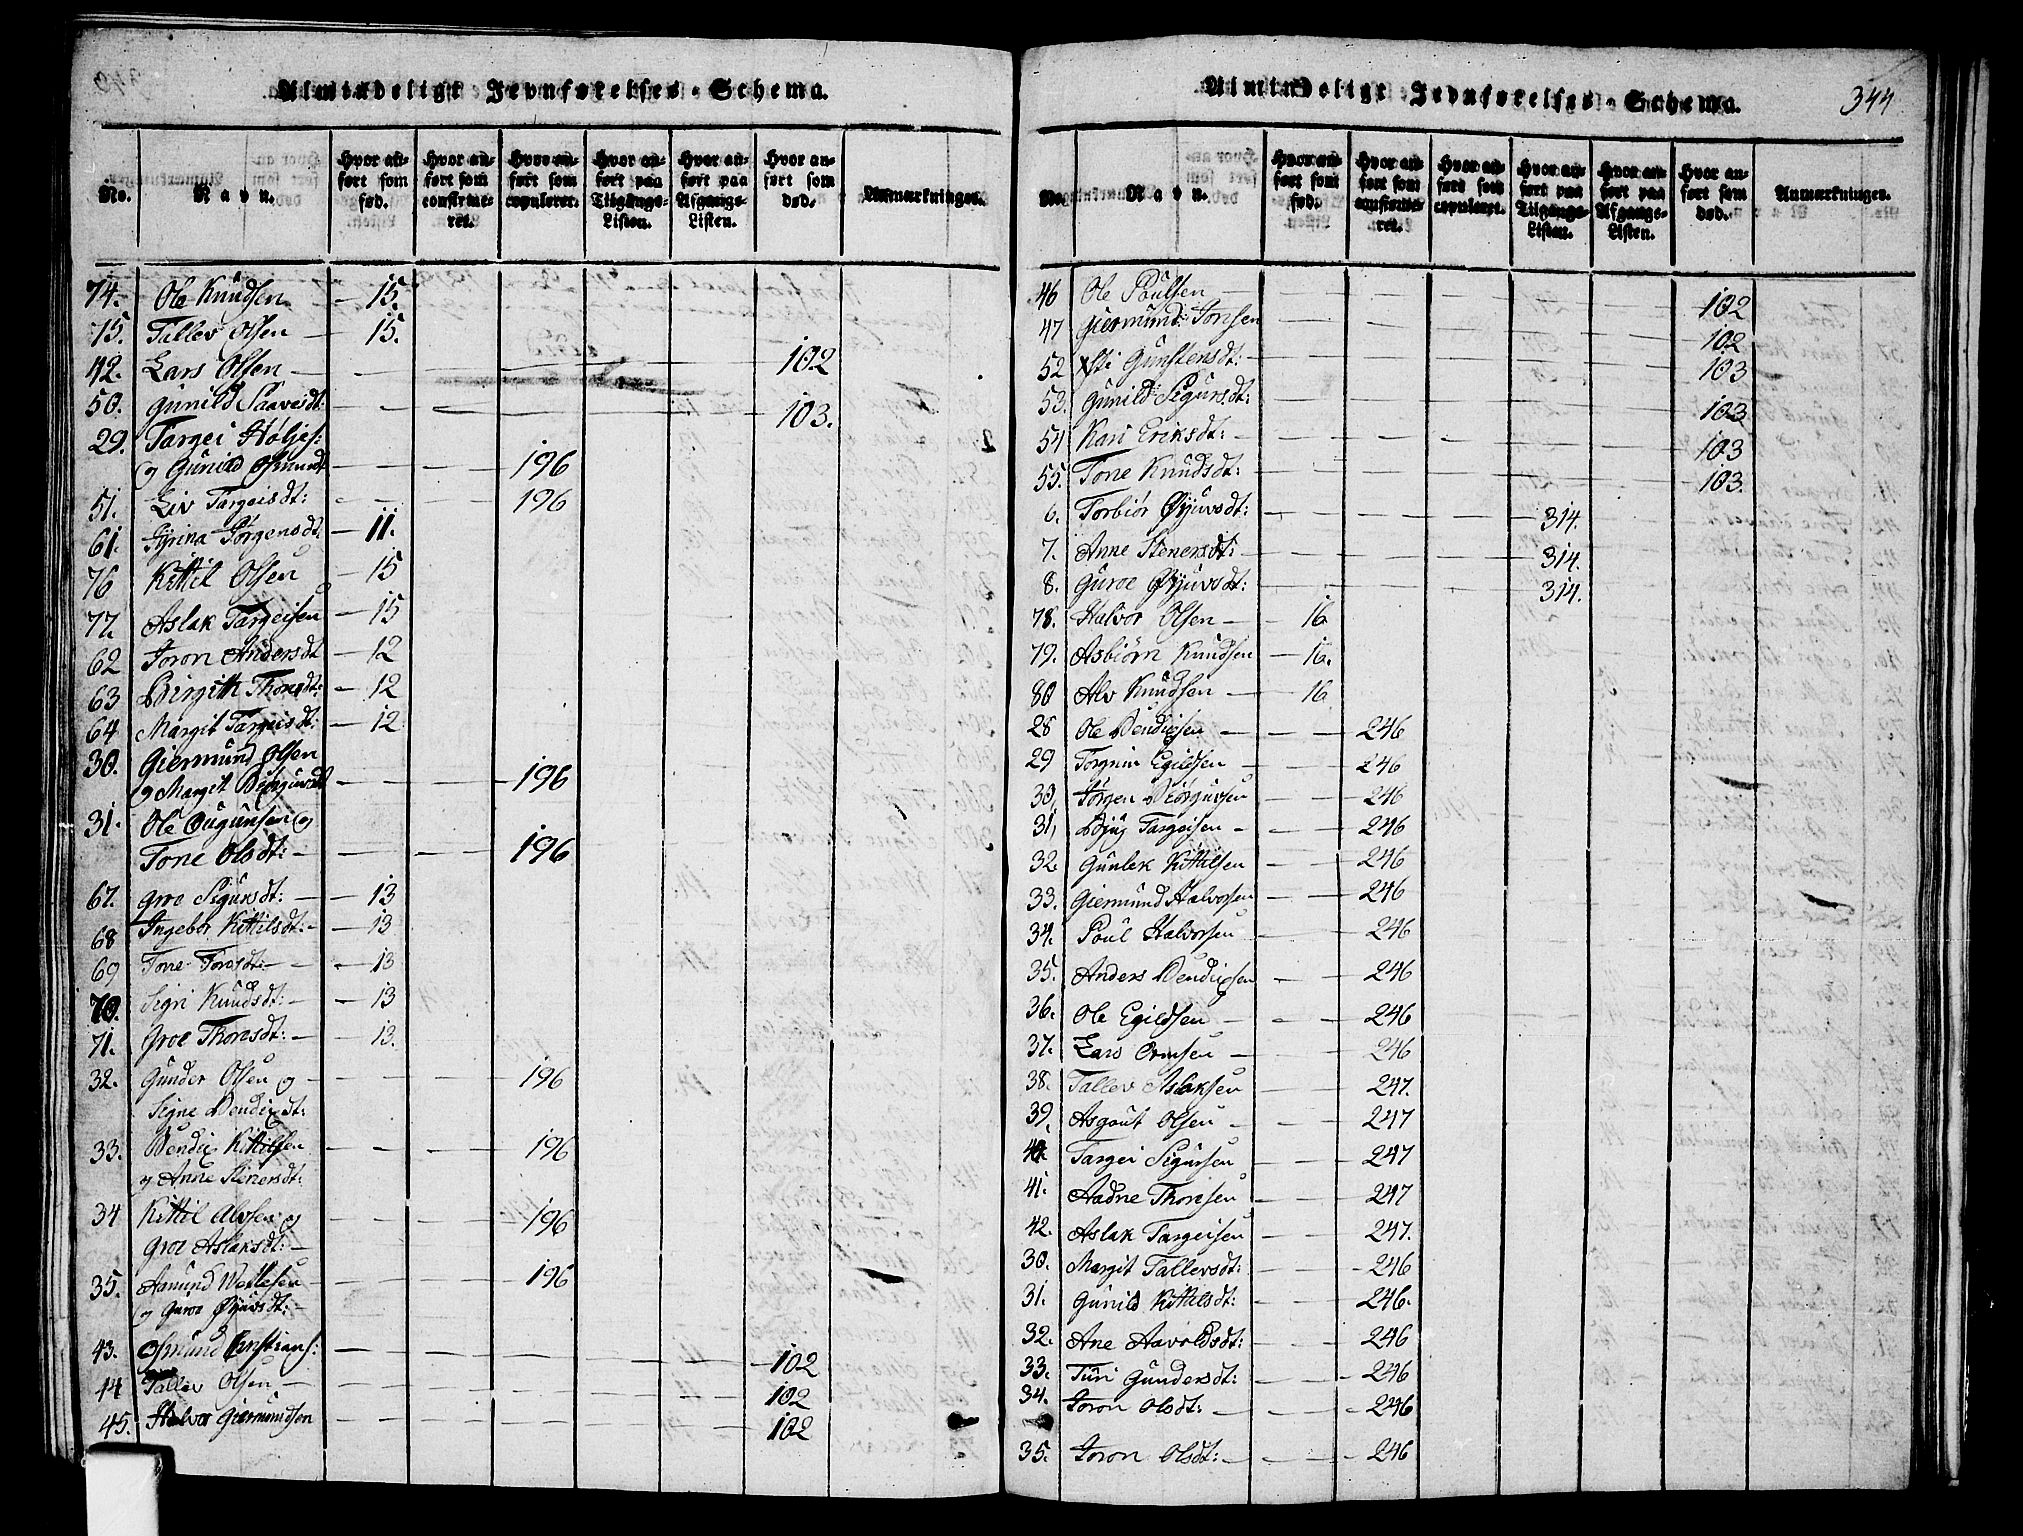 Almindeligt Jevnførelses-Schema.
No. Navn. Hvor anført som fød. Hvor anført som confirmeret. Hvor anført som copuleret. Hvor anført paa Tilgangs-Listen. Hvor anført paa Afgangs-Listen. Hvor anført som død. Anmærkninger.
74. Ole Knudsen — 15.
75. Tallev Olsen — 15.
42. Lars Olsen — 102
50. Gunild Saavesdt: 103.
29. Targei Høljes:
og Gunild Osmundt 196
51. Liv Targeisdt: 196
61. Jørgensdt. — 11.
76 Kittil Olsen — 15
77. Aslak Targeisen — 15
62 Joron Andersdt — 12
63 Birgith Thorsdt: — 12
64 Margit Targeisdt: — 12
30. Giermund Olsen
og Margit 196
31. Ole og
Tone Olsdt: — 196
67. Groe Sigursdt: — 13
68 Ingebor Kittilsdt: — 13
69 Tone — 13
70. Sigri Knudsdt: — 13
71. Groe Thorsdt: — 13.
32. Gunder Olsen og — 196
Signe Bendixdt:
33. Bendix Kittilsen 196
og Anne Stenersdt:
34 Kittil Alvsen og 196
Groe Aslaksdt: —
35. Amund 196
og Guroe Øyuvsdt: —
43. Osmund 102
44 Tallev Olsen — 102
45. Halvor Giermundsen 102
Almindeligt Jevnførelses-Schema.
344
No. Navn. Hvor anført som fød. Hvor anført som confirmeret. Hvor anført som copuleret. Hvor anført paa Tilgangs-Listen. Hvor anført paa Afgangs-Listen. Hvor anført som død. Anmærkninger.
46 Ole Poulsen — 102
47 Giermund Jonsen 102
52 Gunstensdt: 103
53. Gunild Sigursdt: 103
54 Kari Eriksdt: — 103
55. Tone Knudsdt: 103.
6. Torbiør Øyuvsdt: 314.
7. Anne Stenersdt: 314.
8. Guroe Øyuvsdt: 314.
78. Halvor Olsen — 16
79. Asbiørn Knudsen — 16.
80 Alv Knudsen — 16
28 Ole Bendixsen — 246
29 Egildsen — 246
30, Jørgen 246
31, Targeisen — 246
32. Gunlek Kittilsen 246
33. Giermund Halvorsen 246
34. Poul Halvorsen 246
35. Anders Bendixsen 246
36. Ole Egildsen — 246
37. Lars Ormsen — 246
38. Tallev Aslaksen 247.
39. Asgout Olsen — 247
40. Targei Sigursen 247
41. Aadne Thorsen 247
42. Aslak Targeisen 247.
30. Margit Tallevsdt: 246
31. Gunild Kittilsdt: 246.
32. Ane Aavoldsdt: 246
33. Turi Gundersdt: 246
34. Joron Olsdt: — 246
35. Joron Olsdt: — 246